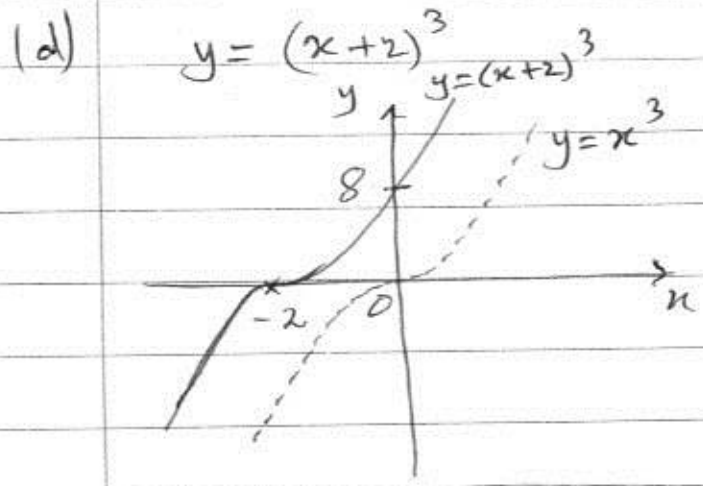 (d) y = (x+2)³
y=(x+2)³
y
y=x³
8
-2 0
x